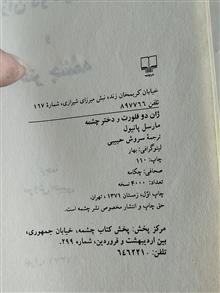 خیابان کریمخان زند، نبش میرزای شیرازی، شمارهٔ ۱۶۷
تلفن ۸۹۷۷۶۶
ژان دو فلورت و دختر چشمه
مارسل پانیول
ترجمهٔ سروش حبیبی
لیتوگرافی: بهار
چاپ: ۱۱۰
صحافی: چکامه
تعداد: ۴۰۰۰ نسخه
چاپ اول، زمستان ۱۳۷۱، تهران
حق چاپ و انتشار مخصوص نشر چشمه است.
مرکز پخش: پخش کتاب چشمه، خیابان جمهوری،
بین اردیبهشت و فروردین، شماره ۲۹۹.
تلفن: ۶۴۶۲۲۱۰